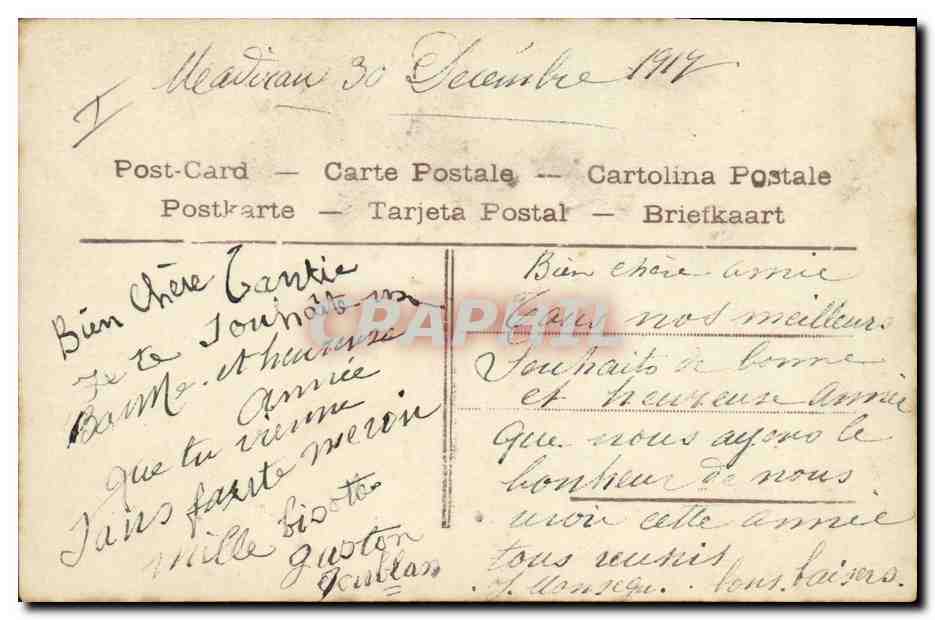 30 Décembre
I
Post-Card — Carte Postale — Cartolina Postale
Postkarte — Tarjeta Postal — Briefkaart
Bien chère Tantie
Je te souhaite une
Bonne et heureuse
année
que tu vienne
sans faute me voir
mille bisotes
Gaston
Bien chère amie
Tous nos meilleurs
Souhaits de bonne
et heureuse année
que nous ayons le
bonheur de nous
voir cette année
tous reunis
bons baisers.
CPAPHIL